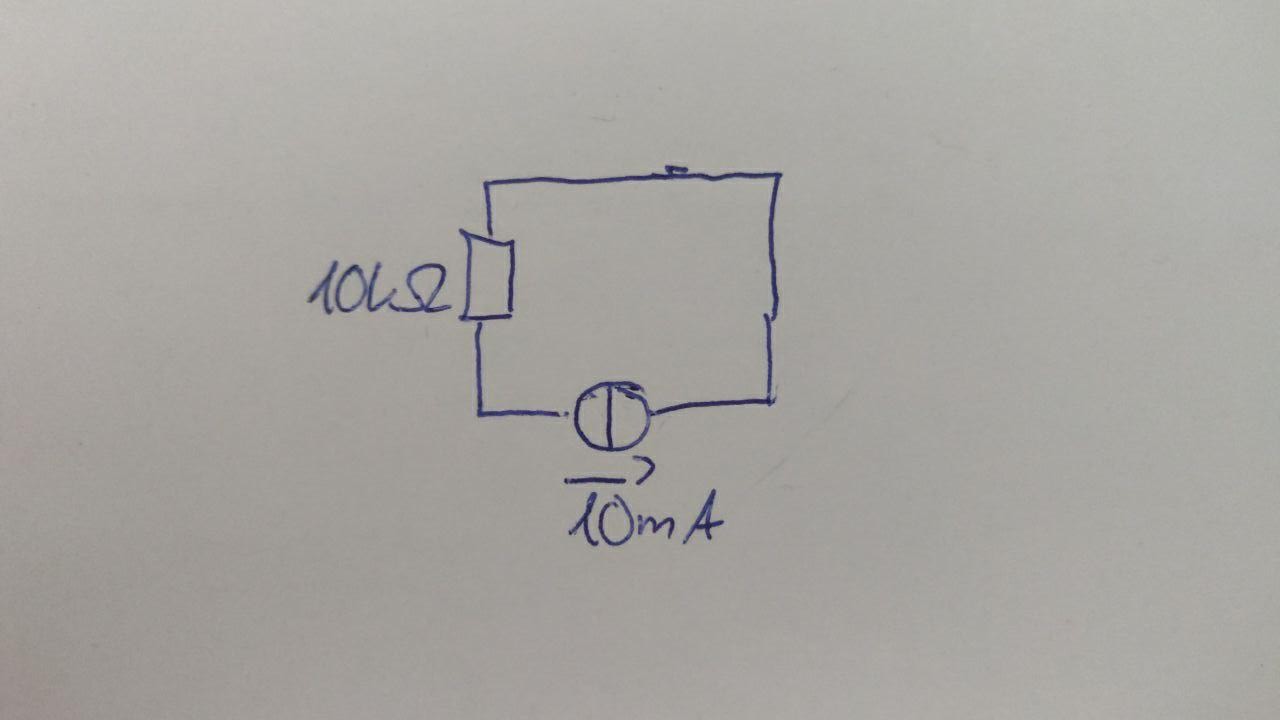 10kΩ
10mA